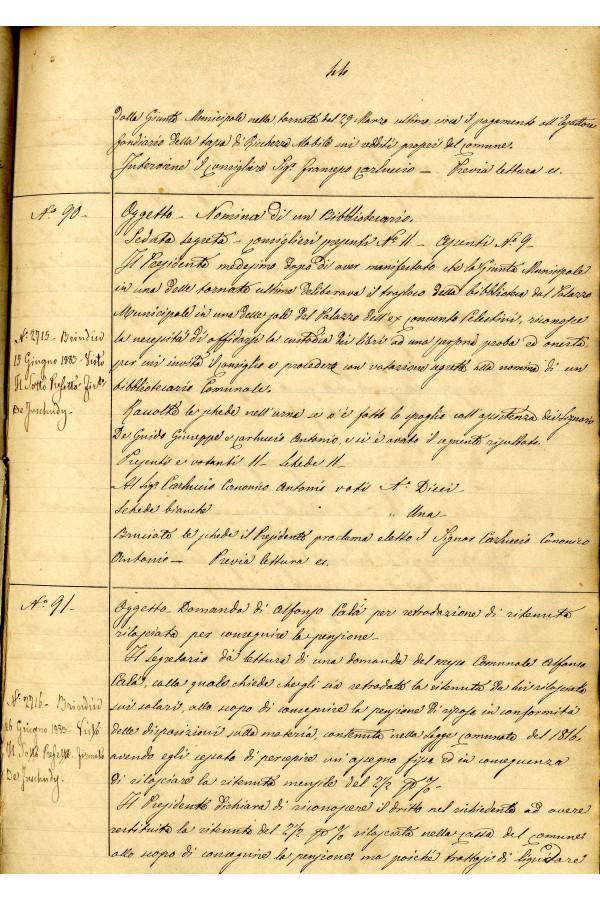 44
Dalla Giunta Municipale nella tornata del 29 Marzo ultimo, circa il pagamento all'Esattore
fondiario della tassa di Ricchezza Mobile sui redditi proprii del comune.
Interviene il Consigliere Sigr Carluccio — Previa lettura ec.
No 90 -
Oggetto - Nomina di un Bibbliotecario.
Seduta segreta - consiglieri presenti No 11 - assenti No 9 -
Il Presidente medesimo dopo di aver manifestato che la Giunta Municipale
in una delle tornate ultime deliberava il trasloco della biblioteca dal Palazzo
Municipale in una delle sale del Palazzo dell'ex convento Celestini, riconosce
la necessità di affidarsi la custodia dei libri ad una persona proba ed onesta
per cui invita il consiglio a procedere con votazione segreta alla nomina di un
bibliotecario Comunale.
No 2715 - Brindisi
15 Giugno 1883 - Visto
Il Sotto Prefetto Firto
De Juschudy -
Raccolte le schede nell'urna se n'è fatto lo spoglio coll'assistenza dei Signori
De Guido Giuseppe e Carluccio Antonio, e si è avuto il seguente risultato.
Presenti e votanti 11 - Schede 11 -
Al Sigr Carluccio Canonico Antonio voti No Dieci -
Schede bianche " Una -
Bruciate le schede il Presidente proclama eletto il Signor Carluccio Canonico
Antonio — Previa lettura ec.
No 91 -
Oggetto - Domanda di Alfonso Calà per retrodazione di ritenuta
rilasciata per conseguire la pensione -
Il Segretario dà lettura di una domanda del messo Comunale Alfonso
Calà, colla quale chiede che gli sia retrodata la ritenuta da lui rilasciata
sui salari, allo scopo di conseguire la pensione di riposo in conformità
delle disposizioni sulla materia, contenute nella legge emanata del 1816,
avendo egli cessato di percepire un assegno fisso ed in conseguenza
di rilasciare la ritenuta mensile del 2½ p%.
No 2716 - Brindisi
16 Giugno 1883 - Visto
Il Sotto Prefetto - firmato
De Juschudy -
Il Presidente dichiara di riconoscere il dritto nel richiedente ad avere
restituita la ritenuta del 2½ p% rilasciata nella cassa del comune
allo scopo di conseguire la pensione, ma poiché trattasi di liquidare